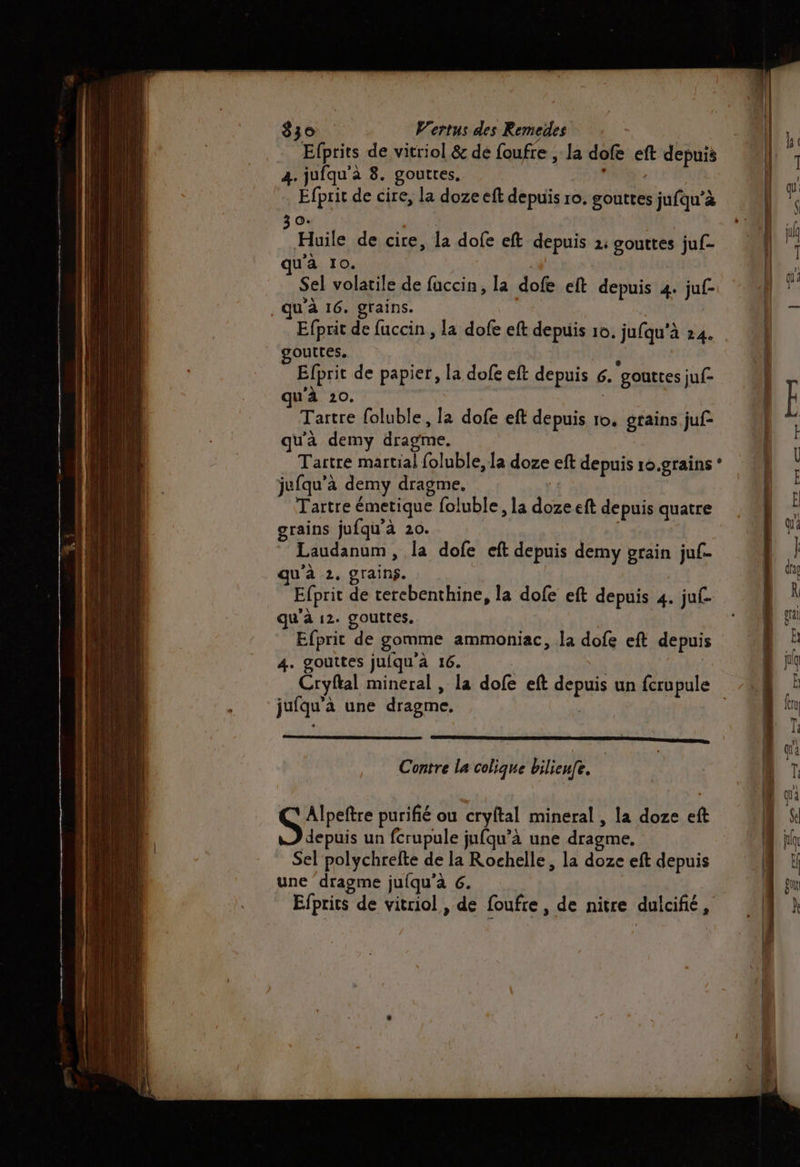 830 Vertus des Remedes
Eſprits de vitriol & de ſoufre, la doſe eſt depuis
4. juſqu'à 8. gouttes.
Eſprit de cire, la doze eſt depuis 10. gouttes juſqu'à
30.
Huile de cire, la doſe eſt depuis 2. gouttes juſ-
qu'à 10.
Sel volatile de ſuccin, la doſe eſt depuis 4. juſ-
qu'à 16. grains.
Eſprit de ſuccin, la doſe eſt depuis 10. juſqu'à 24.
gouttes.
Eſprit de papier, la doſe eſt depuis 6. gouttes juſ-
qu'à 20.
Tartre ſoluble, la doſe eſt depuis 10. grains juſ-
qu'à demy dragme.
Tartre martial ſoluble, la doze eſt depuis 10. grains
juſqu'à demy dragme.
Tartre émetique ſoluble, la doze eſt depuis quatre
grains juſqu'à 20.
Laudanum, la doſe eſt depuis demy grain juſ-
qu'à 2. grains.
Eſprit de terebenthine, la doſe eſt depuis 4. juſ-
qu'à 12. gouttes.
Eſprit de gomme ammoniac, la doſe eſt depuis
4. gouttes juſqu'à 16.
Cryſtal mineral, la doſe eſt depuis un ſcrupule
juſqu'à une dragme.
Contre la colique bilieuſe.
SAlpeſtre purifié ou cryſtal mineral, la doze eſt
depuis un ſcrupule juſqu'à une dragme.
Sel polychreſte de la Rochelle, la doze eſt depuis
une dragme juſqu'à 6.
Eſprits de vitriol, de ſoufre, de nitre dulcifié,